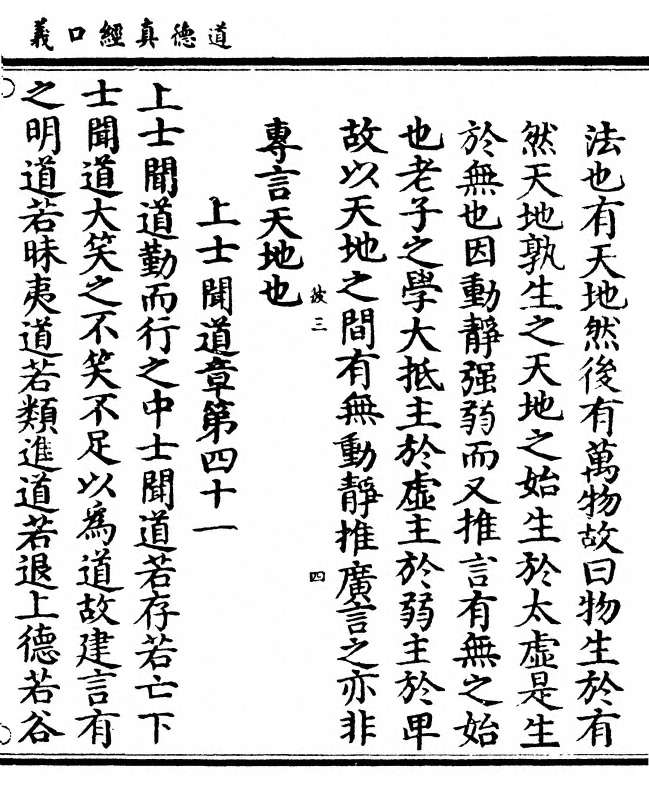 道德真經口義
法也有天地然後有萬物故曰物生於有
然天地孰生之天地之始生於太虛是生
於無也因動靜强弱而又推言有無之始
也老子之學大抵主於虛主於弱主於卑
故以天地之間有無動靜推廣言之亦非
彼三
四
專言天地也
上士聞道章第四十一
上士聞道勤而行之中士聞道若存若亡下
士聞道大笑之不笑不足以爲道故建言有
之明道若昧夷道若類進道若退上德若谷